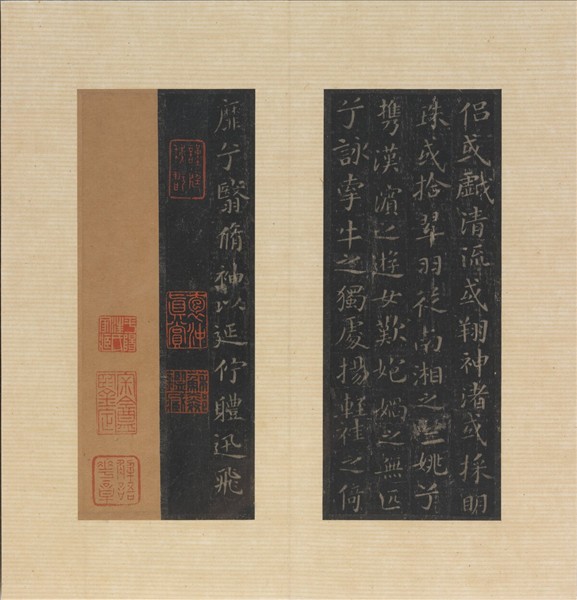 侣或戲清流或翔神渚或採明
珠或拾翠羽從南湘之二姚兮
携漢濱之遊女歎媧之無匹
兮詠牽牛之獨處揚輕袿之倚
靡兮翳脩袖以延佇體迅飛
真賞